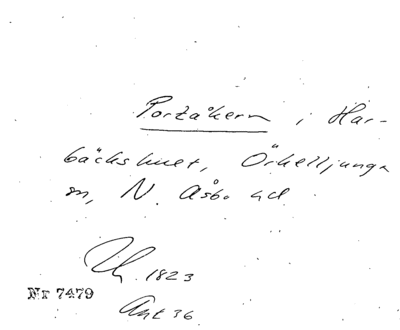 Portåkern i Har-
bäckshult, Örkelljunga
sn, N. Åsbo hd
1823
Nr 7479
Akt 36